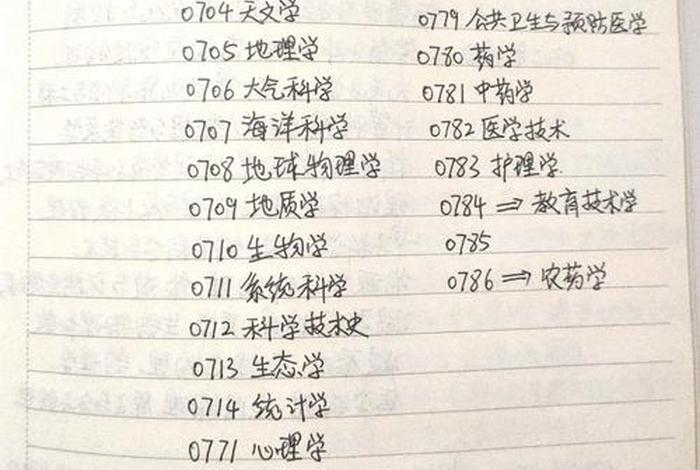 0704 天文学
0705 地理学
0706 大气科学
0707 海洋科学
0708 地球物理学
0709 地质学
0710 生物学
0711 系统科学
0712 科学技术史
0713 生态学
0714 统计学
0771 心理学
0779 公共卫生与预防医学
0780 药学
0781 中药学
0782 医学技术
0783 护理学
0784 ⇒ 教育技术学
0785
0786 ⇒ 农药学